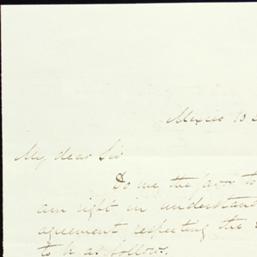 Mexico 13
My dear Sir
Do me the favor to
am right in understand
agreement respecting the
to be as follows.